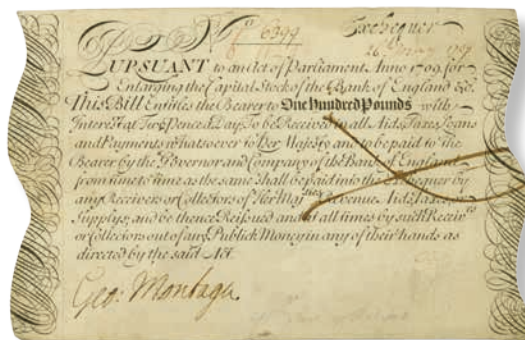 No 6399 Exchequer
26th May 1709
PURSUANT to an Act of Parliament Anno 1709 for
Enlarging the Capital Stock of the Bank of England &c.
This Bill Entitles the Bearer to One Hundred Pounds with
Interest at Two Pence a Day, To be Received in all Aids, Taxes, Loans
and Payments whatsoever to Her Majesty and to be paid to the
Bearer by the Governor and Company of the Bank of England
from time to time as the same shall be paid into the Exchequer by
any Receivers or Collectors of Her Majties Revenue, Aids, Taxes or
Supplys; and be thence Reissued and at all times by such Receivrs
or Collectors out of any Publick Money in any of their hands as
directed by the said Act.
Geo: Montagu